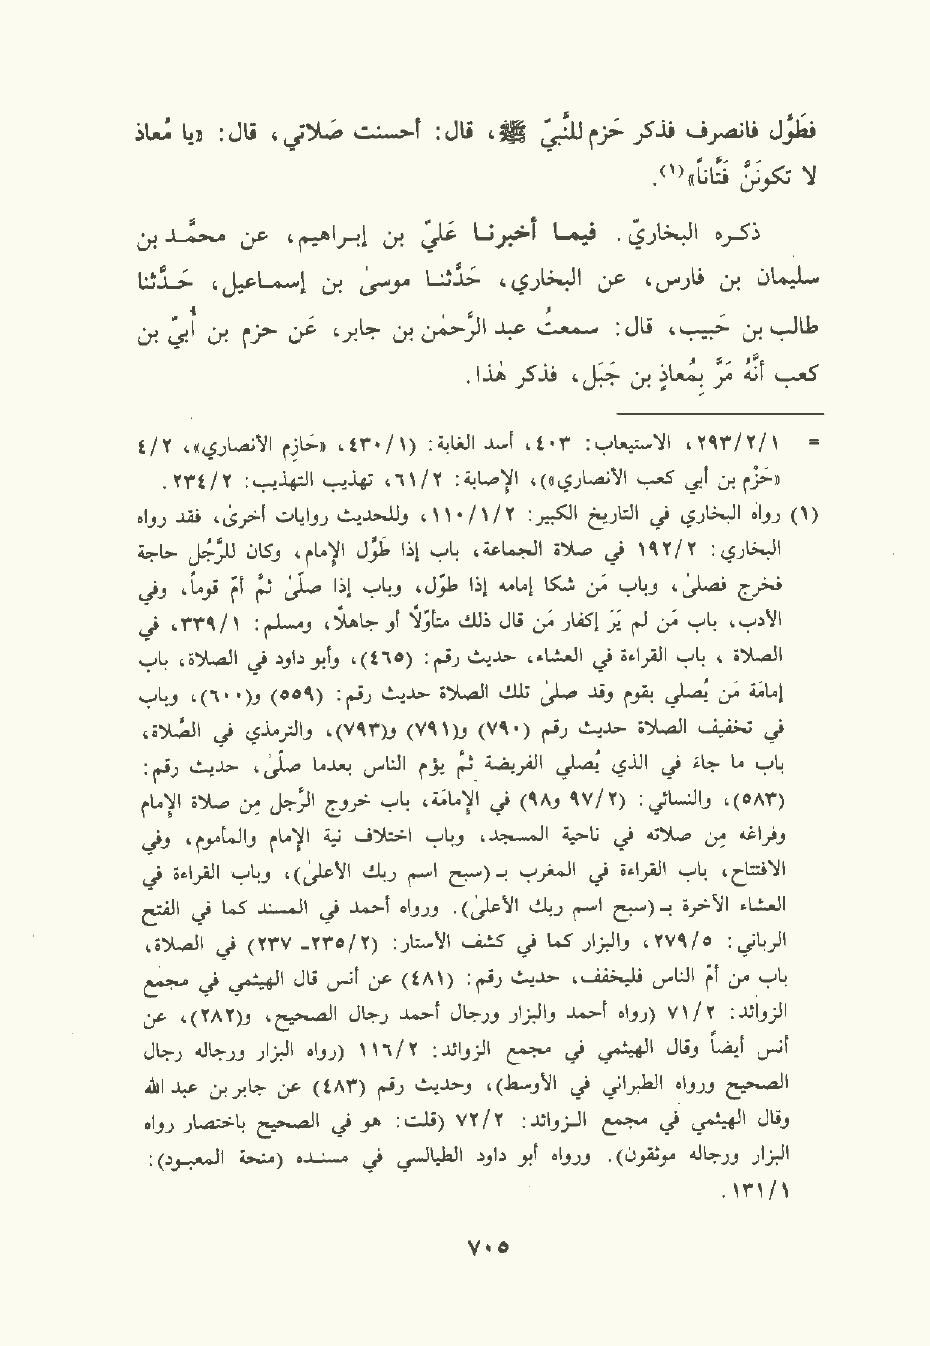 فطَوَّل فانصرف فذكر حَزم للنَّبيِّ ﷺ، قال: أحسنت صَلاتي، قال: «يا مُعاذ
لا تكونَنَّ فَتَّاناً»(١).
ذكره البخاريّ. فيما أخبرنا عَليّ بن إبراهيم، عن محمَّد بن
سليمان بن فارس، عن البخاري، حَدَّثنا موسىٰ بن إسماعيل، حَدَّثنا
طالب بن حَبيب، قال: سمعتُ عبد الرَّحمٰن بن جابر، عَن حزم بن أُبيّ بن
كعب أنَّهُ مَرَّ بِمُعاذِ بن جَبَل، فذكر هٰذا.
= ٢٩٣/٢/١، الاستيعاب: ٤٠٣، أسد الغابة: (٤٣٠/١)، «حَازِم الأنصاري»، ٤/٢
«حَزْم بن أبي كعب الأنصاري»)، الإصابة: ٦١/٢، تهذيب التهذيب: ٢٣٤/٢.
(١) رواه البخاري في التاريخ الكبير: ١١٠/١/٢، وللحديث روايات أخرىٰ، فقد رواه
البخاري: ١٩٢/٢ في صلاة الجماعة، باب إذا طوَّل الإمام، وكان للرَّجُل حاجة
فخرج فصلىٰ، وباب مَن شكا إمامه إذا طوّل، وباب إذا صلّىٰ ثمّ أمّ قوماً، وفي
الأدب، باب مَن لم يَرَ إكفار مَن قال ذلك متأوّلاً أو جاهلاً، ومسلم: ٣٣٩/١، في
الصلاة ، باب القراءة في العشاء، حديث رقم: (٤٦٥)، وأبو داود في الصلاة، باب
إمامَة مَن يُصلي بقوم وقد صلىٰ تلك الصلاة حديث رقم: (٥٥٩) و(٦٠٠)، وباب
في تخفيف الصلاة حديث رقم (٧٩٠) و(٧٩١) و(٧٩٣)، والترمذي في الصَّلاة،
باب ما جاء في الذي يُصلي الفريضة ثمَّ يؤم الناس بعدما صلّىٰ، حديث رقم:
(٥٨٣)، والنسائي: (٩٧/٢ و٩٨) في الإمامَة، باب خروج الرَّجل مِن صلاة الإمام
وفراغه مِن صلاته في ناحية المسجد، وباب اختلاف نية الإمام والمأموم، وفي
الافتتاح، باب القراءة في المغرب بـ(سبح اسم ربك الأعلىٰ)، وباب القراءة في
العشاء الأخرة بـ(سبح اسم ربك الأعلىٰ). ورواه أحمد في المسند كما في الفتح
الرباني: ٢٧٩/٥، والبزار كما في كشف الأستار: (٢٣٥/٢ـ ٢٣٧) في الصلاة،
باب من أمّ الناس فليخفف، حديث رقم: (٤٨١) عن أنس قال الهيثمي في مجمع
الزوائد: ٧١/٢ (رواه أحمد والبزار ورجال أحمد رجال الصحيح، و(٢٨٢)، عن
أنس أيضاً وقال الهيثمي في مجمع الزوائد: ١١٦/٢ (رواه البزار ورجاله رجال
الصحيح ورواه الطبراني في الأوسط)، وحديث رقم (٤٨٣) عن جابر بن عبد الله
وقال الهيثمي في مجمع الزوائد: ٧٢/٢ (قلت: هو في الصحيح باختصار رواه
البزار ورجاله موثقون). ورواه أبو داود الطيالسي في مسنده (منحة المعبود):
١٣١/١.
٧٠٥